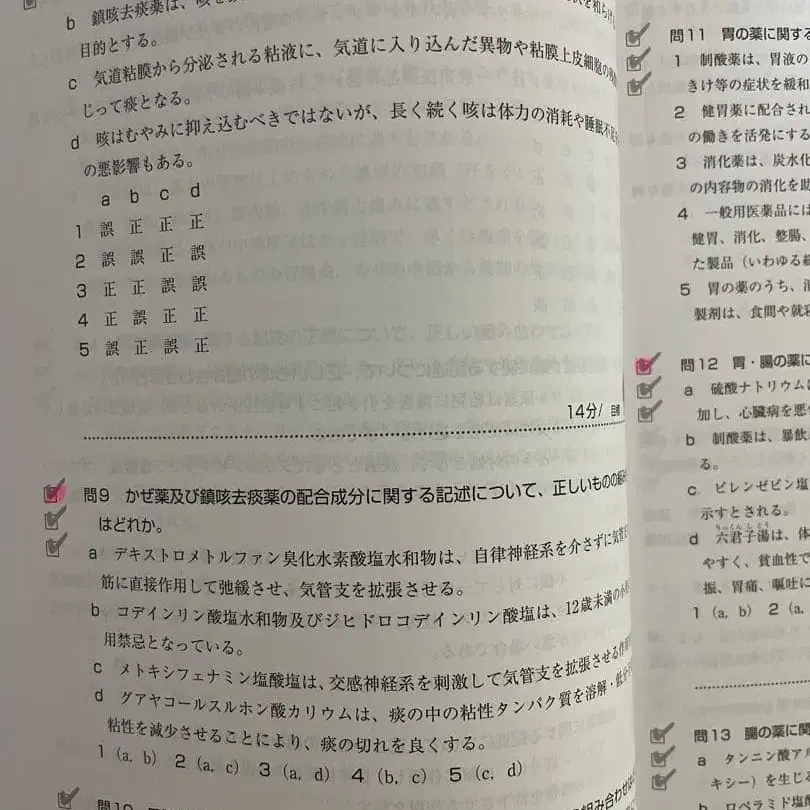 b 鎮咳去痰薬は、咳を
目的とする。
c 気道粘膜から分泌される粘液に、気道に入り込んだ異物や粘膜上皮細胞の
じって痰となる。
d 咳はむやみに抑え込むべきではないが、長く続く咳は体力の消耗や睡眠不足
の悪影響もある。
a b c d
1 誤 正 正 正
2 誤 誤 正 誤
3 正 正 誤 誤
4 正 誤 正 正
5 誤 正 誤 正
14分/ 目標
問9 かぜ薬及び鎮咳去痰薬の配合成分に関する記述について、正しいものの組
はどれか。
a デキストロメトルファン臭化水素酸塩水和物は、自律神経系を介さずに気管
筋に直接作用して弛緩させ、気管支を拡張させる。
b コデインリン酸塩水和物及びジヒドロコデインリン酸塩は、12歳未満の小
用禁忌となっている。
c メトキシフェナミン塩酸塩は、交感神経系を刺激して気管支を拡張させる作用
d グアヤコールスルホン酸カリウムは、痰の中の粘性タンパク質を溶解・低分
粘性を減少させることにより、痰の切れを良くする。
1 (a, b) 2 (a, c) 3 (a, d) 4 (b, c) 5 (c, d)
問10
組み合わせは
問11 胃の薬に関する
1 制酸薬は、胃液の
きけ等の症状を緩和
2 健胃薬に配合され
の働きを活発にする
3 消化薬は、炭水化
の内容物の消化を助
4 一般用医薬品には
健胃、消化、整腸、
た製品(いわゆる総
5 胃の薬のうち、消
製剤は、食間や就寝
問12 胃・腸の薬に
a 硫酸ナトリウムは
加し、心臓病を悪
b 制酸薬は、暴飲
る。
c ピレンゼピン塩
示すとされる。
d 六君子湯は、体
りっくんしとう
やすく、貧血性で
振、胃痛、嘔吐に
1 (a, b) 2 (a,
4 (a,
問13 腸の薬に関
a タンニン酸アル
キシー)を生じ
b ロペラミド塩